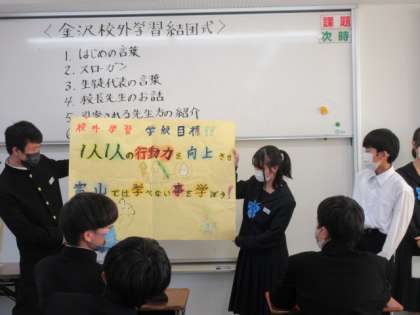 〈金沢校外学習結団式〉
課題
次時
1. はじめの言葉
2. スローガン
3. 生徒代表の言葉
4. 校長先生のお話
される先生方の紹介
校外学習 学級目標!!
1人1人の行動力を向上させ
富山では学べない事を学ぼう!